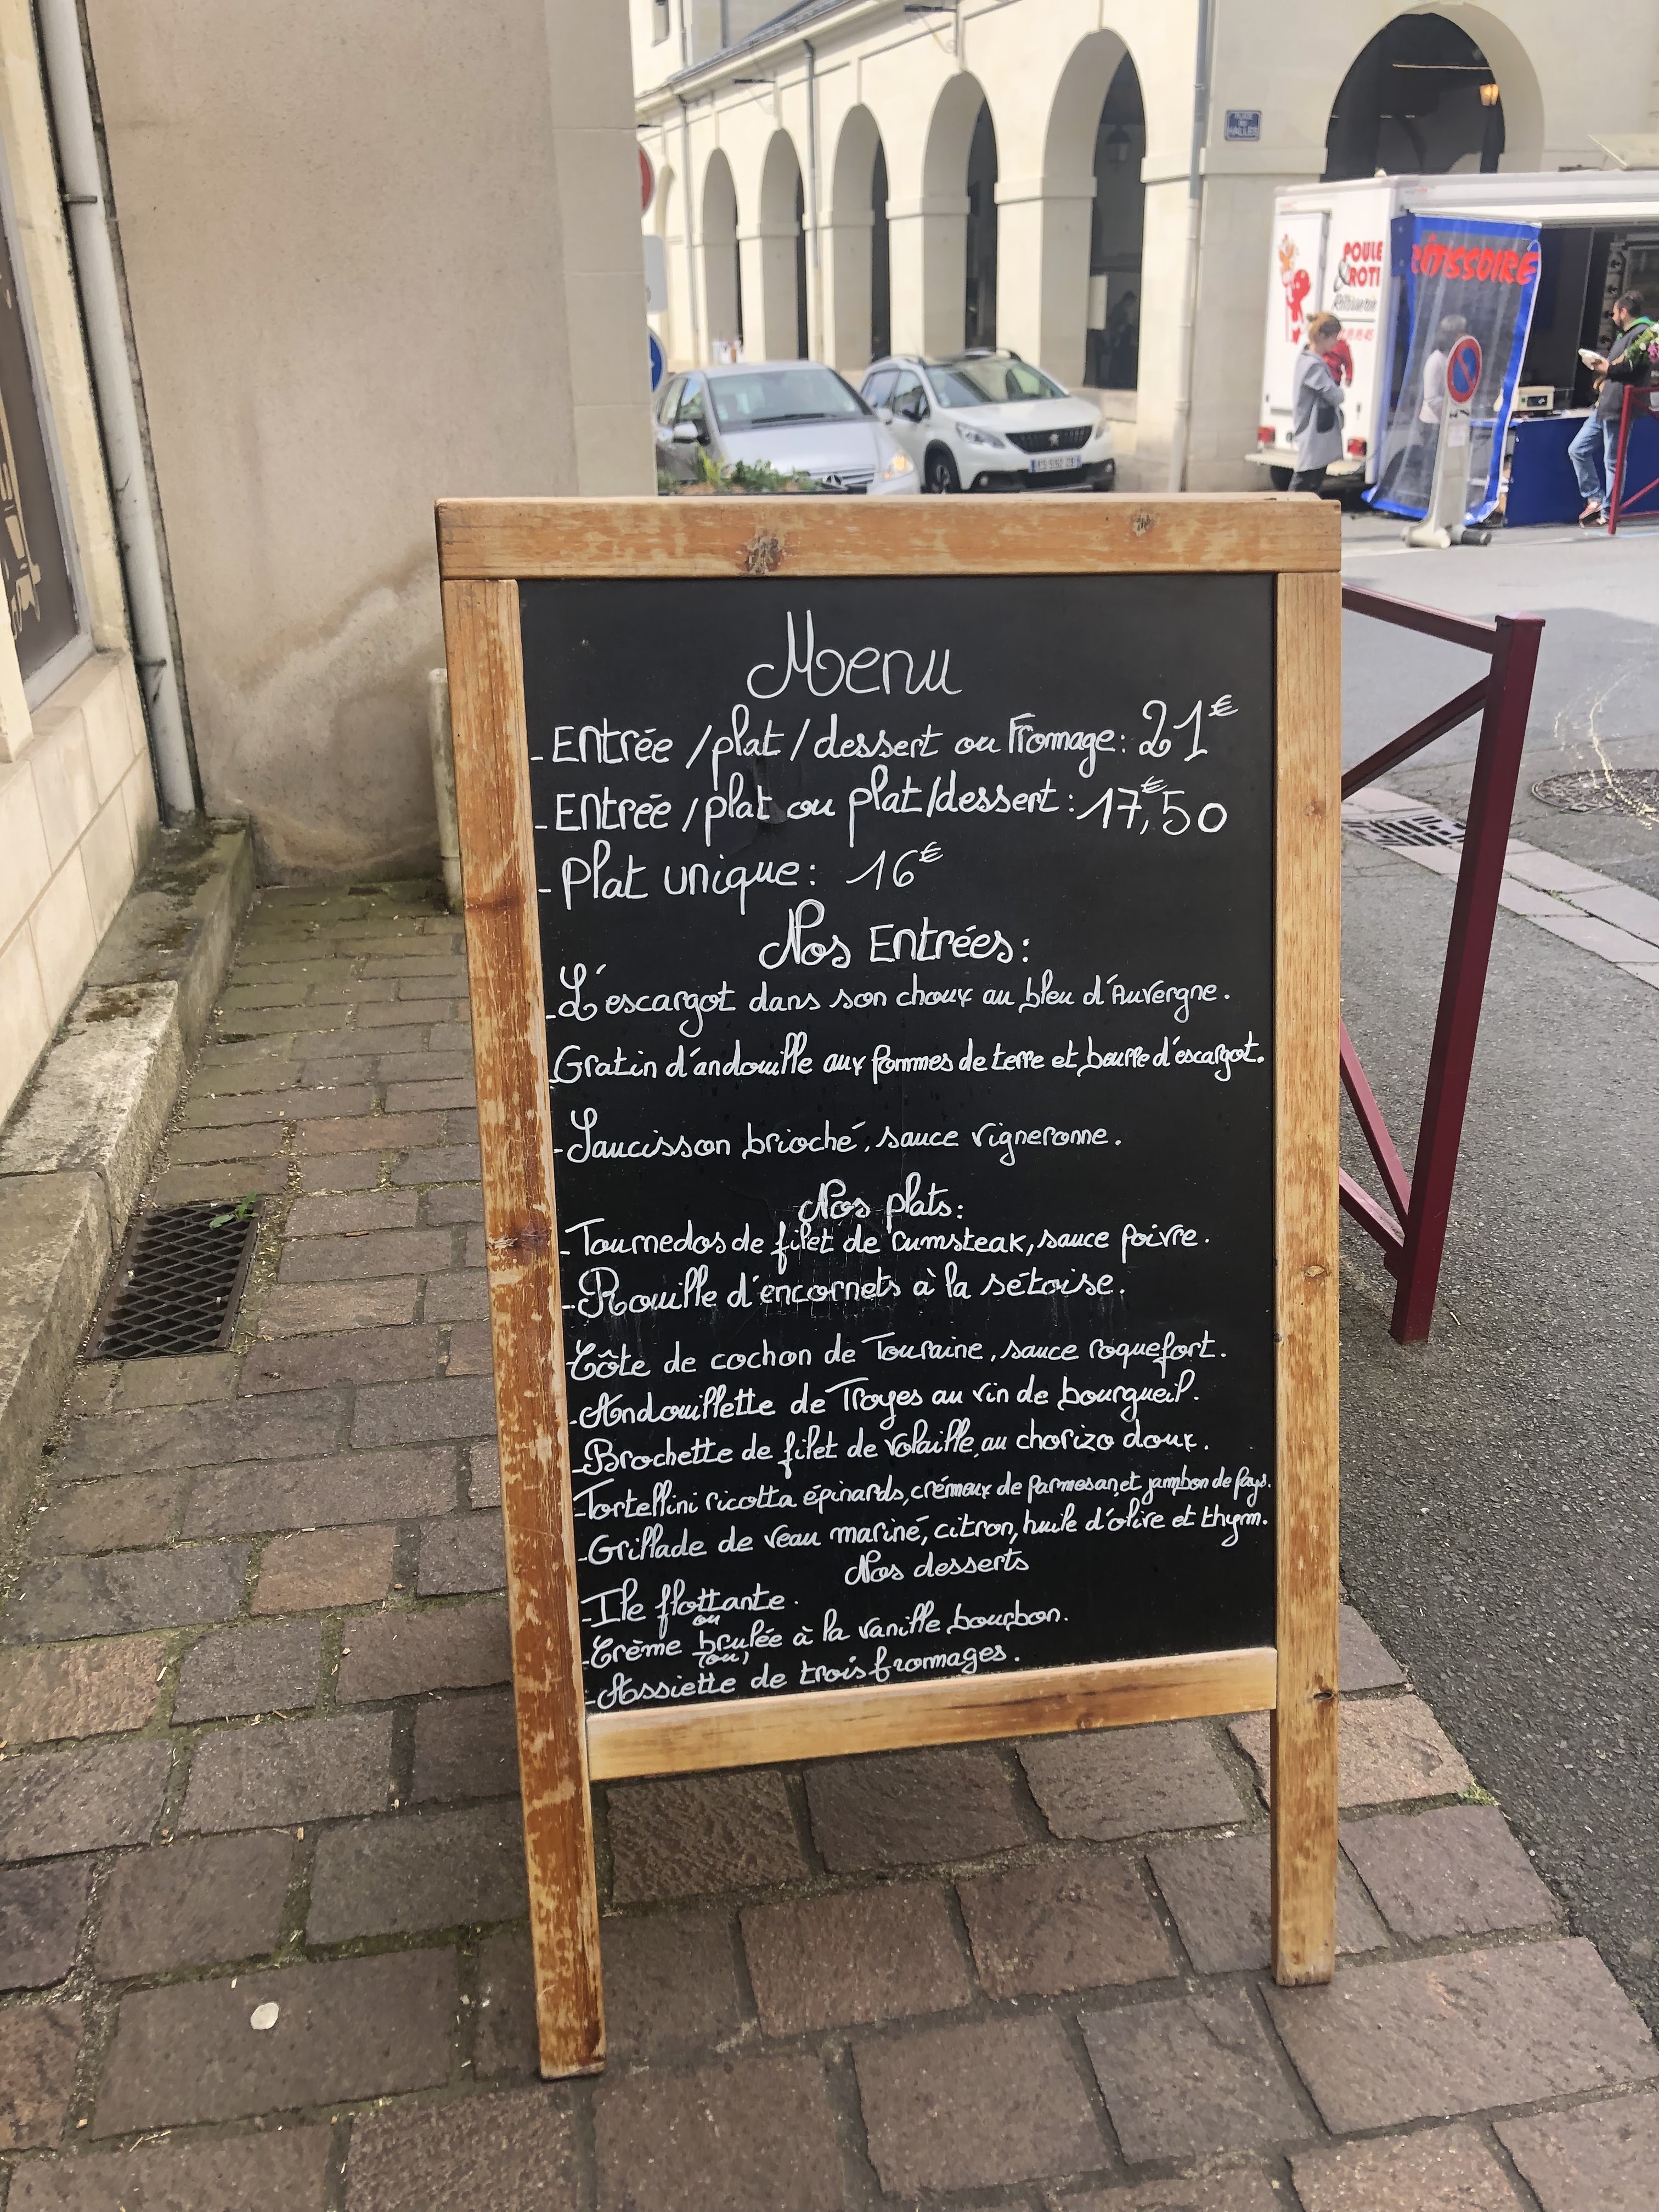 PLACE
DES
HALLES
POULE
& ROTI
Rôtisserie
RÔTISSOIRE
Menu
- Entrée / plat / dessert ou Fromage : 21€
- Entrée / plat ou plat/dessert : 17€,50
- Plat unique : 16€
Nos Entrées :
- L'escargot dans son choux au bleu d'Auvergne.
- Gratin d'andouille aux pommes de terre et beurre d'escargot.
- Saucisson brioché, sauce vigneronne.
Nos plats :
- Tournedos de filet de rumsteak, sauce poivre.
- Rouille d'encornets à la sétoise.
Côte de cochon de Touraine, sauce roquefort.
- Andouillette de Troyes au vin de bourgueil.
- Brochette de filet de volaille, au chorizo doux.
- Tortellini ricotta épinards, crémeux de parmesan, et jambon de pays.
- Grillade de veau mariné, citron, huile d'olive et thym.
Nos desserts
- Ile flottante.
ou
- Crème brulée à la vanille bourbon.
(ou)
- Assiette de trois fromages.